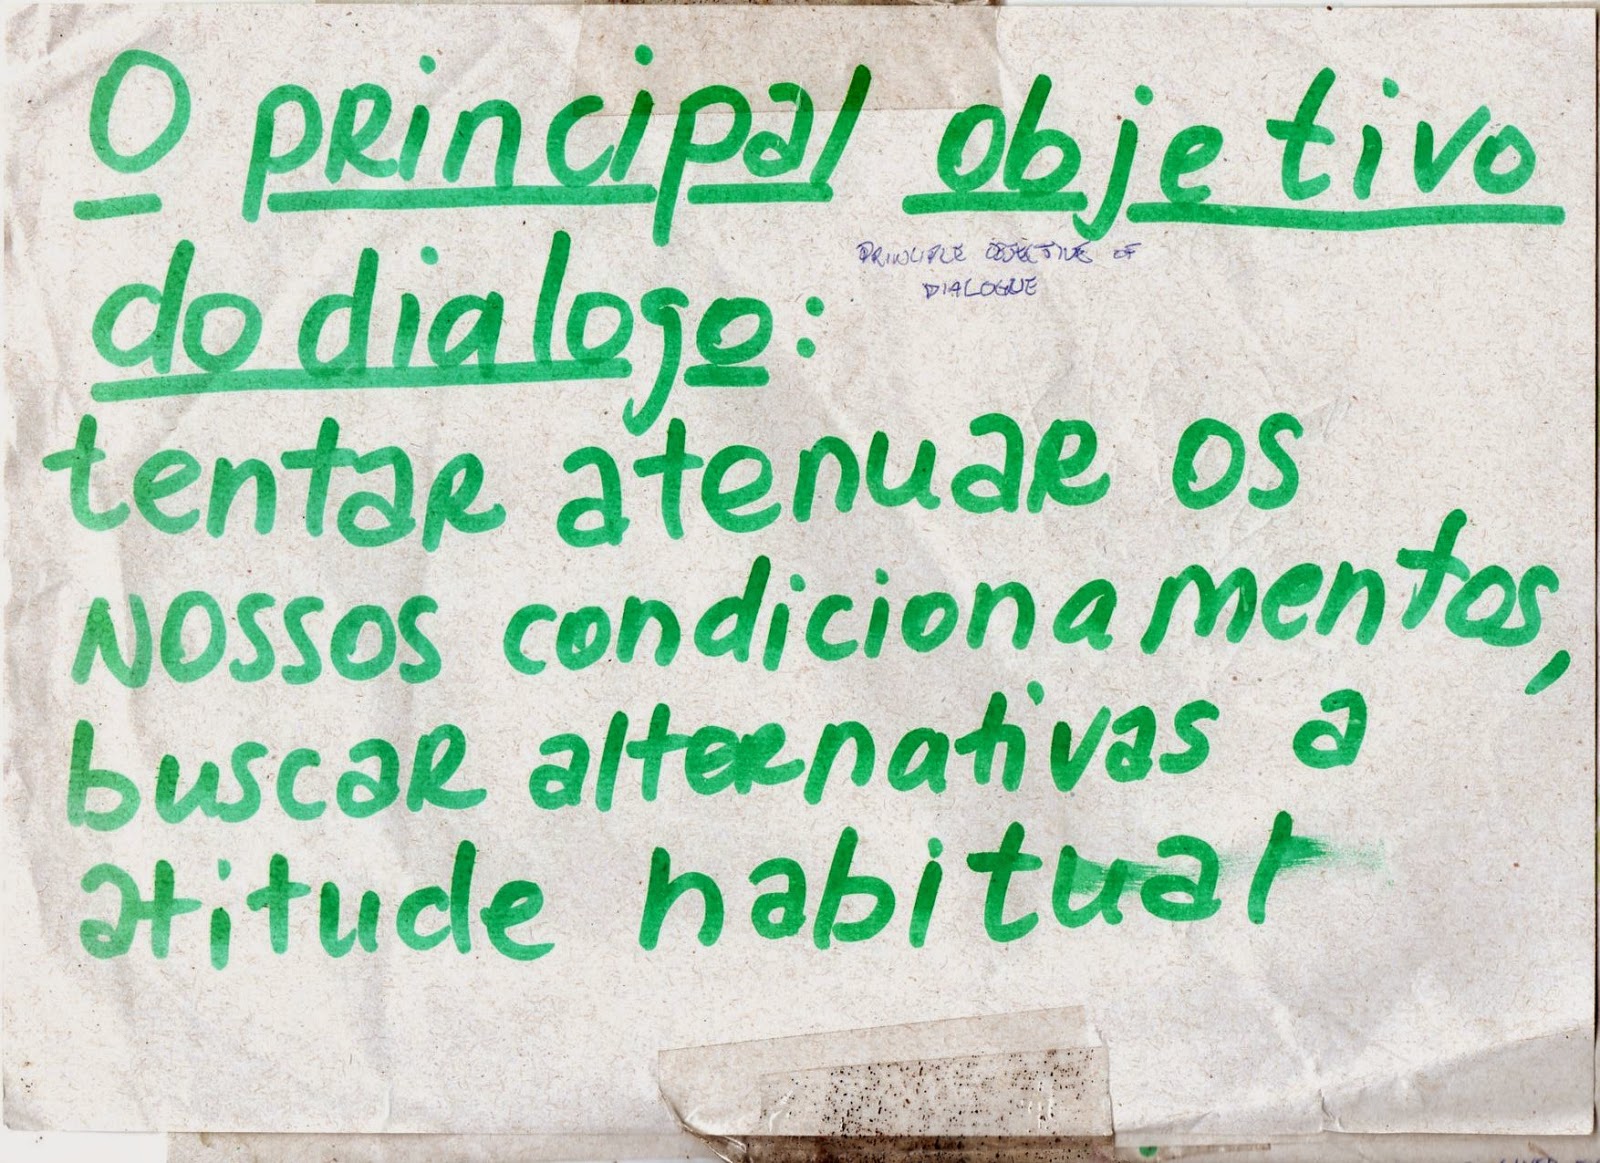 O principal objetivo
PRINCIPLE OBJECTIVE OF
DIALOGUE
do dialogo:
tentar atenuar os
nossos condicionamentos,
buscar alternativas a
atitude habitual